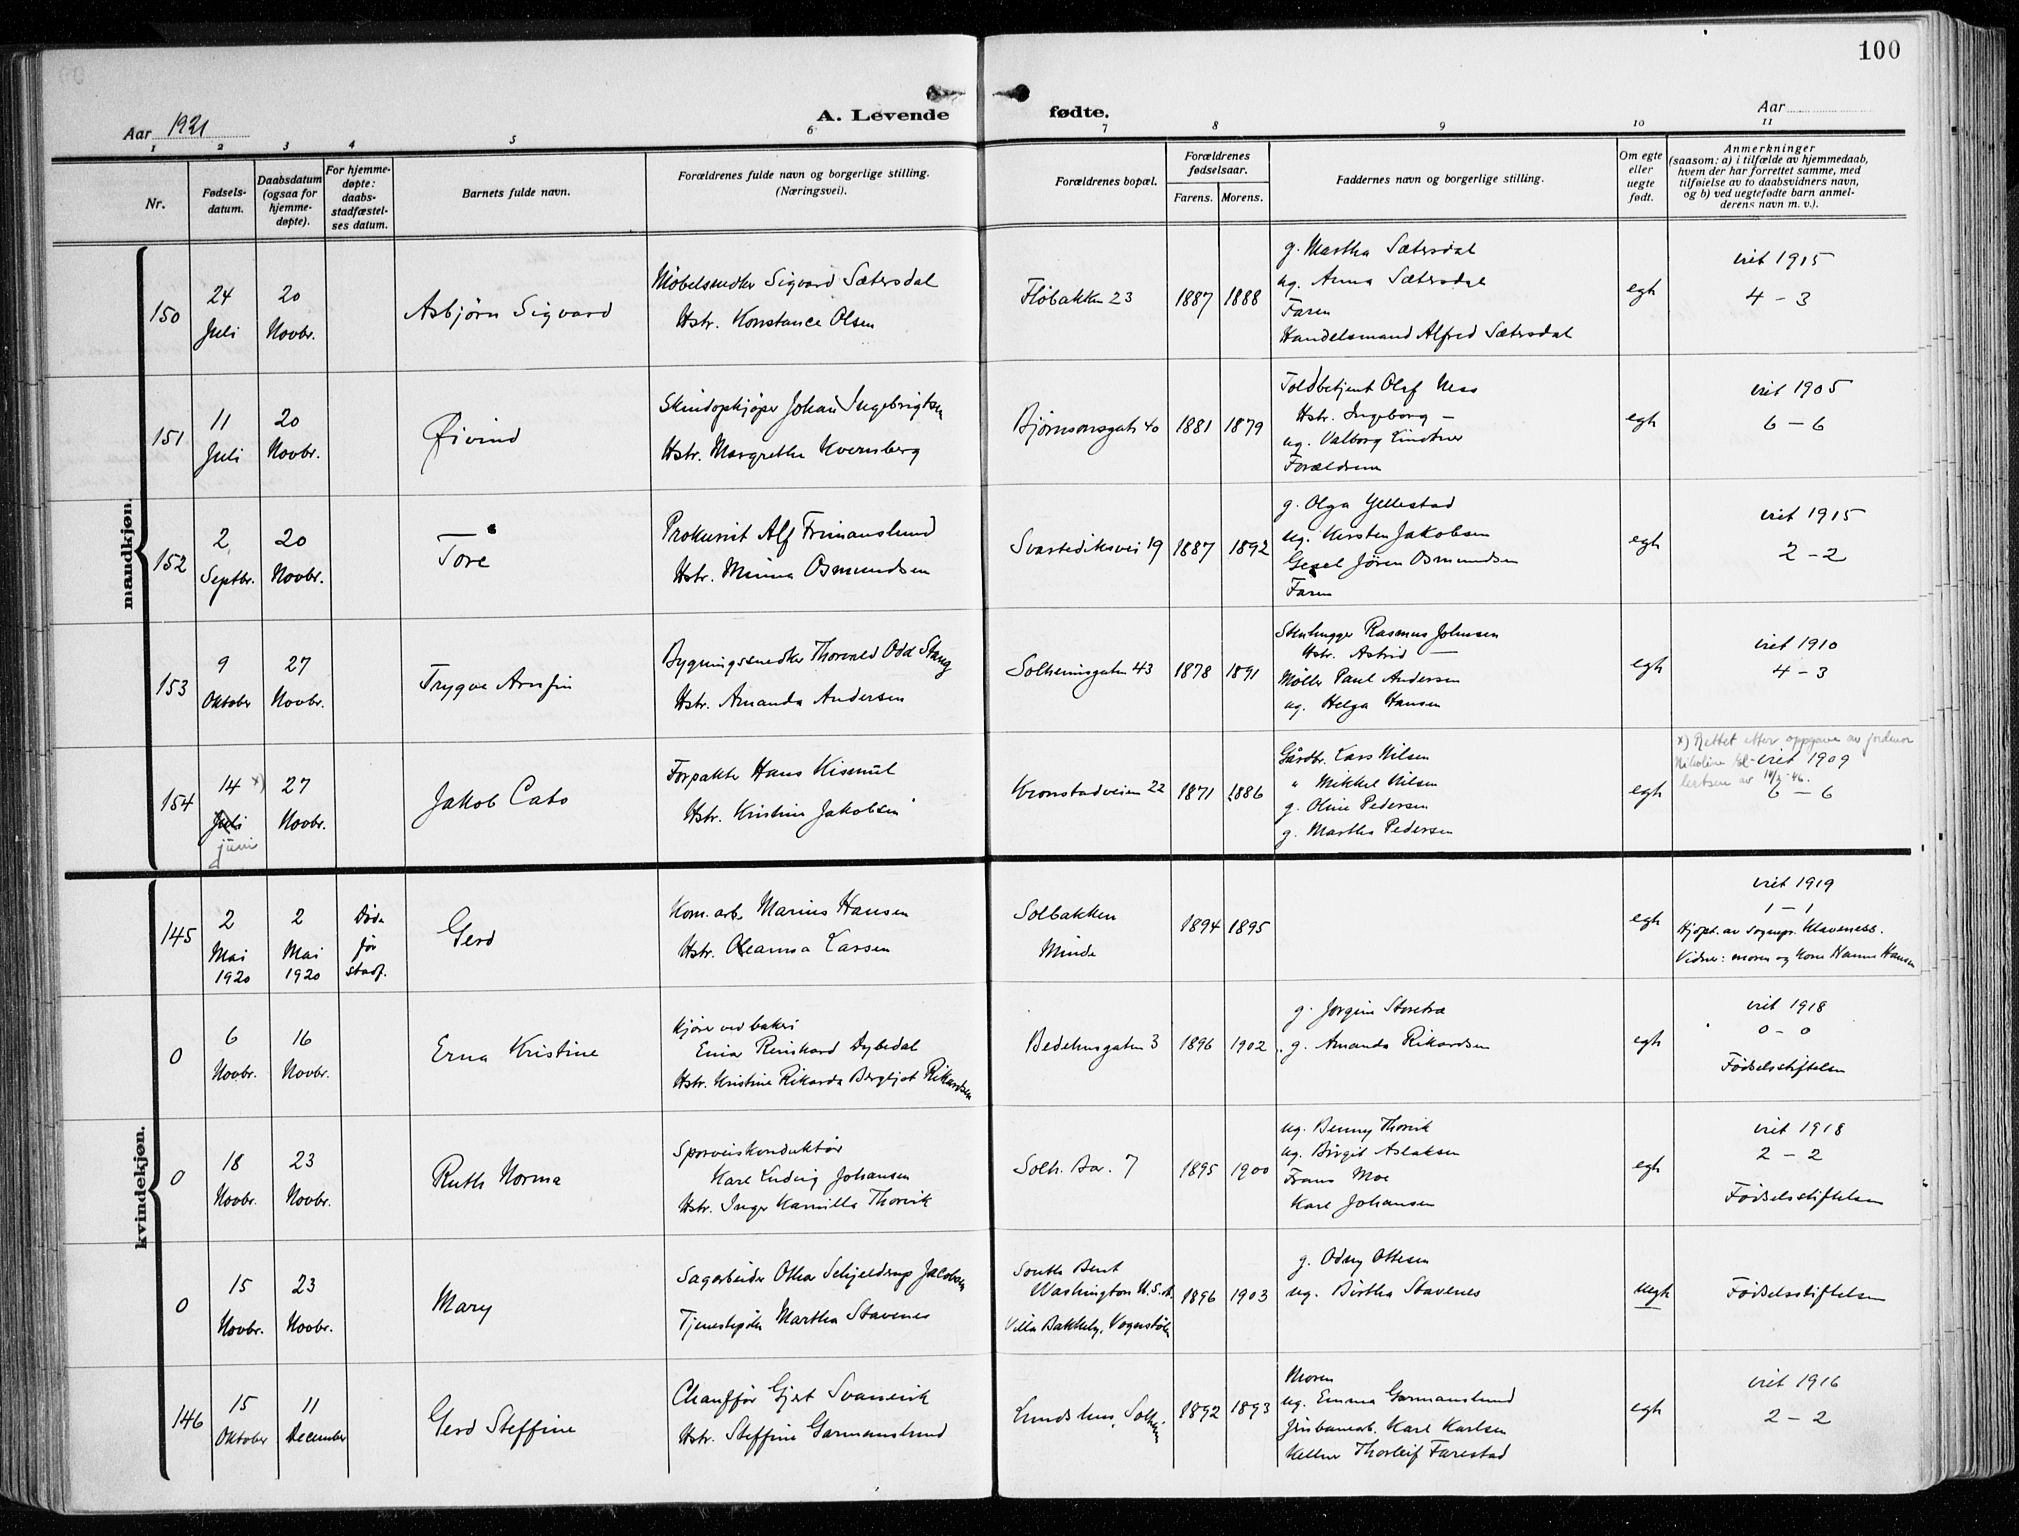 100
Aar 1921
A. Levende fødte.
Aar
1 2 3 4 5 6 7 8 9 10 11
Nr.
Fødsels-
datum.
Daabsdatum
(ogsaa for
hjemme-
døpte).
For hjemme-
døpte:
daabs-
stadfæstel-
ses datum.
Barnets fulde navn.
Forældrenes fulde navn og borgerlige stilling.
(Næringsvei).
Forældrenes bopæl.
Forældrenes
fødselsaar.
Farens. Morens.
Faddernes navn og borgerlige stilling.
Om egte
eller
uegte
født.
Anmerkninger
(saasom: a) i tilfælde av hjemmedaab,
hvem der har forrettet samme, med
tilføielse av to daabsvidners navn,
og b) ved uegtefødte barn anmel-
derens navn m. v.).
mandkjøn.
150
24
Juli
20
Novbr.
Asbjørn Sigvard
Møbelsnedker Sigvard Sætersdal
Hstr. Konstance Olsen
Fløbakken 23
1887
1888
g. Martha Sætersdal
ug. Anna Sætersdal
Faren
Handelsmand Alfred Sætersdal
egt
viet 1915
4 – 3
151
11
Juli
20
Novbr.
Øivind
Skindopkjøper Johan Ingebrigtsen
Hstr. Margrethe Kvernberg
Bjørnsonsgate 40
1881
1879
Toldbetjent Olaf Ness
Hstr. Ingeborg –
ug. Valborg Lindtner
Forældrene
egt
viet 1905
6 – 6
152
2
Septbr.
20
Novbr.
Tore
Prokurist Alf Frimanslund
Hstr. Minna Osmundsen
Svartediksvei 19
1887
1892
g. Olga Gellestad
ug. Kirsten Jakobsen
Gesel Jøren Osmundsen
Faren
egt
viet 1915
2 – 2
153
9
Oktober
27
Novbr.
Trygve Arnfin
Bygningssnedker Thorvald Odd Stang
Hstr. Amanda Andersen
Solheimsgaten 43
1878
1891
Stenhugger Rasmus Johnsen
Hstr. Astrid –
Møller Paul Andersen
ug. Helga Hansen
egt
viet 1910
4 – 3
154
14 x)
Juli
juni
27
Novbr.
Jakob Cato
Forpakter Hans Kismul
Hstr. Kristine Jakobsen
Kronstadveien 22
1871
1886
Gårdbr. Lars Nilsen
" Mikkel Nilsen
g. Oline Pedersen
g. Martha Pedersen
egt
x) Rettet etter oppgave av jordmor
Nikoline
viet 1909
6 – 6
kvindekjøn.
145
2
Mai
1920
2
Mai
1920
Død
før
stadf.
Gerd
Kom. arb. Marius Hansen
Hstr. Oleanna Larsen
Solbakken
Minde
1894
1895
egt
viet 1919
1 – 1
Hjdpt. av Sognepr. Klaveness.
Vidner: moren og Kone Hanna Hansen
0
6
Novbr.
16
Novbr.
Erna Kristine
Kjører ved bakeri
Einar Reinhard Dybedal
Hstr. Kristine Rikarda Bergljot Rikardsen
Bedehusgaten 3
1896
1902
g. Jørgine Storetræ
g. Amanda Rikardsen
egt
viet 1918
0 – 0
Fødselsstiftelsen
0
18
Novbr.
23
Novbr.
Ruth Norma
Sporveiskonduktør
Karl Ludvig Johansen
Hstr. Inger Kamilla Thorvik
Solh. Bar. 7
1895
1900
ug. Benny Thorvik
ug. Birgit Aslaksen
Frans Moe
Karl Johansen
egt
viet 1918
2 – 2
Fødselsstiftelsen
0
15
Novbr.
23
Novbr.
Mary
Sagarbeider Othar Schjelderup Jacobsen
Tjenestepike Martha Stavenes
South Bent
Washington U.S.A.
Villa Bakkely, Vognstølen
1896
1903
g. Odny Ottesen
ug. Birtha Stavenes
uegt
Fødselsstiftelsen
146
15
Oktober
11
December
Gerd Steffine
Chauffør Gjert Svanevik
Hstr. Steffine Garmannslund
Lundshus, Solheim
1892
1893
Moren
ug. Emma Garmannslund
Jernbanearb. Karl Karlsen
Kelner Thorleif Farestad
egt
viet 1916
2 – 2